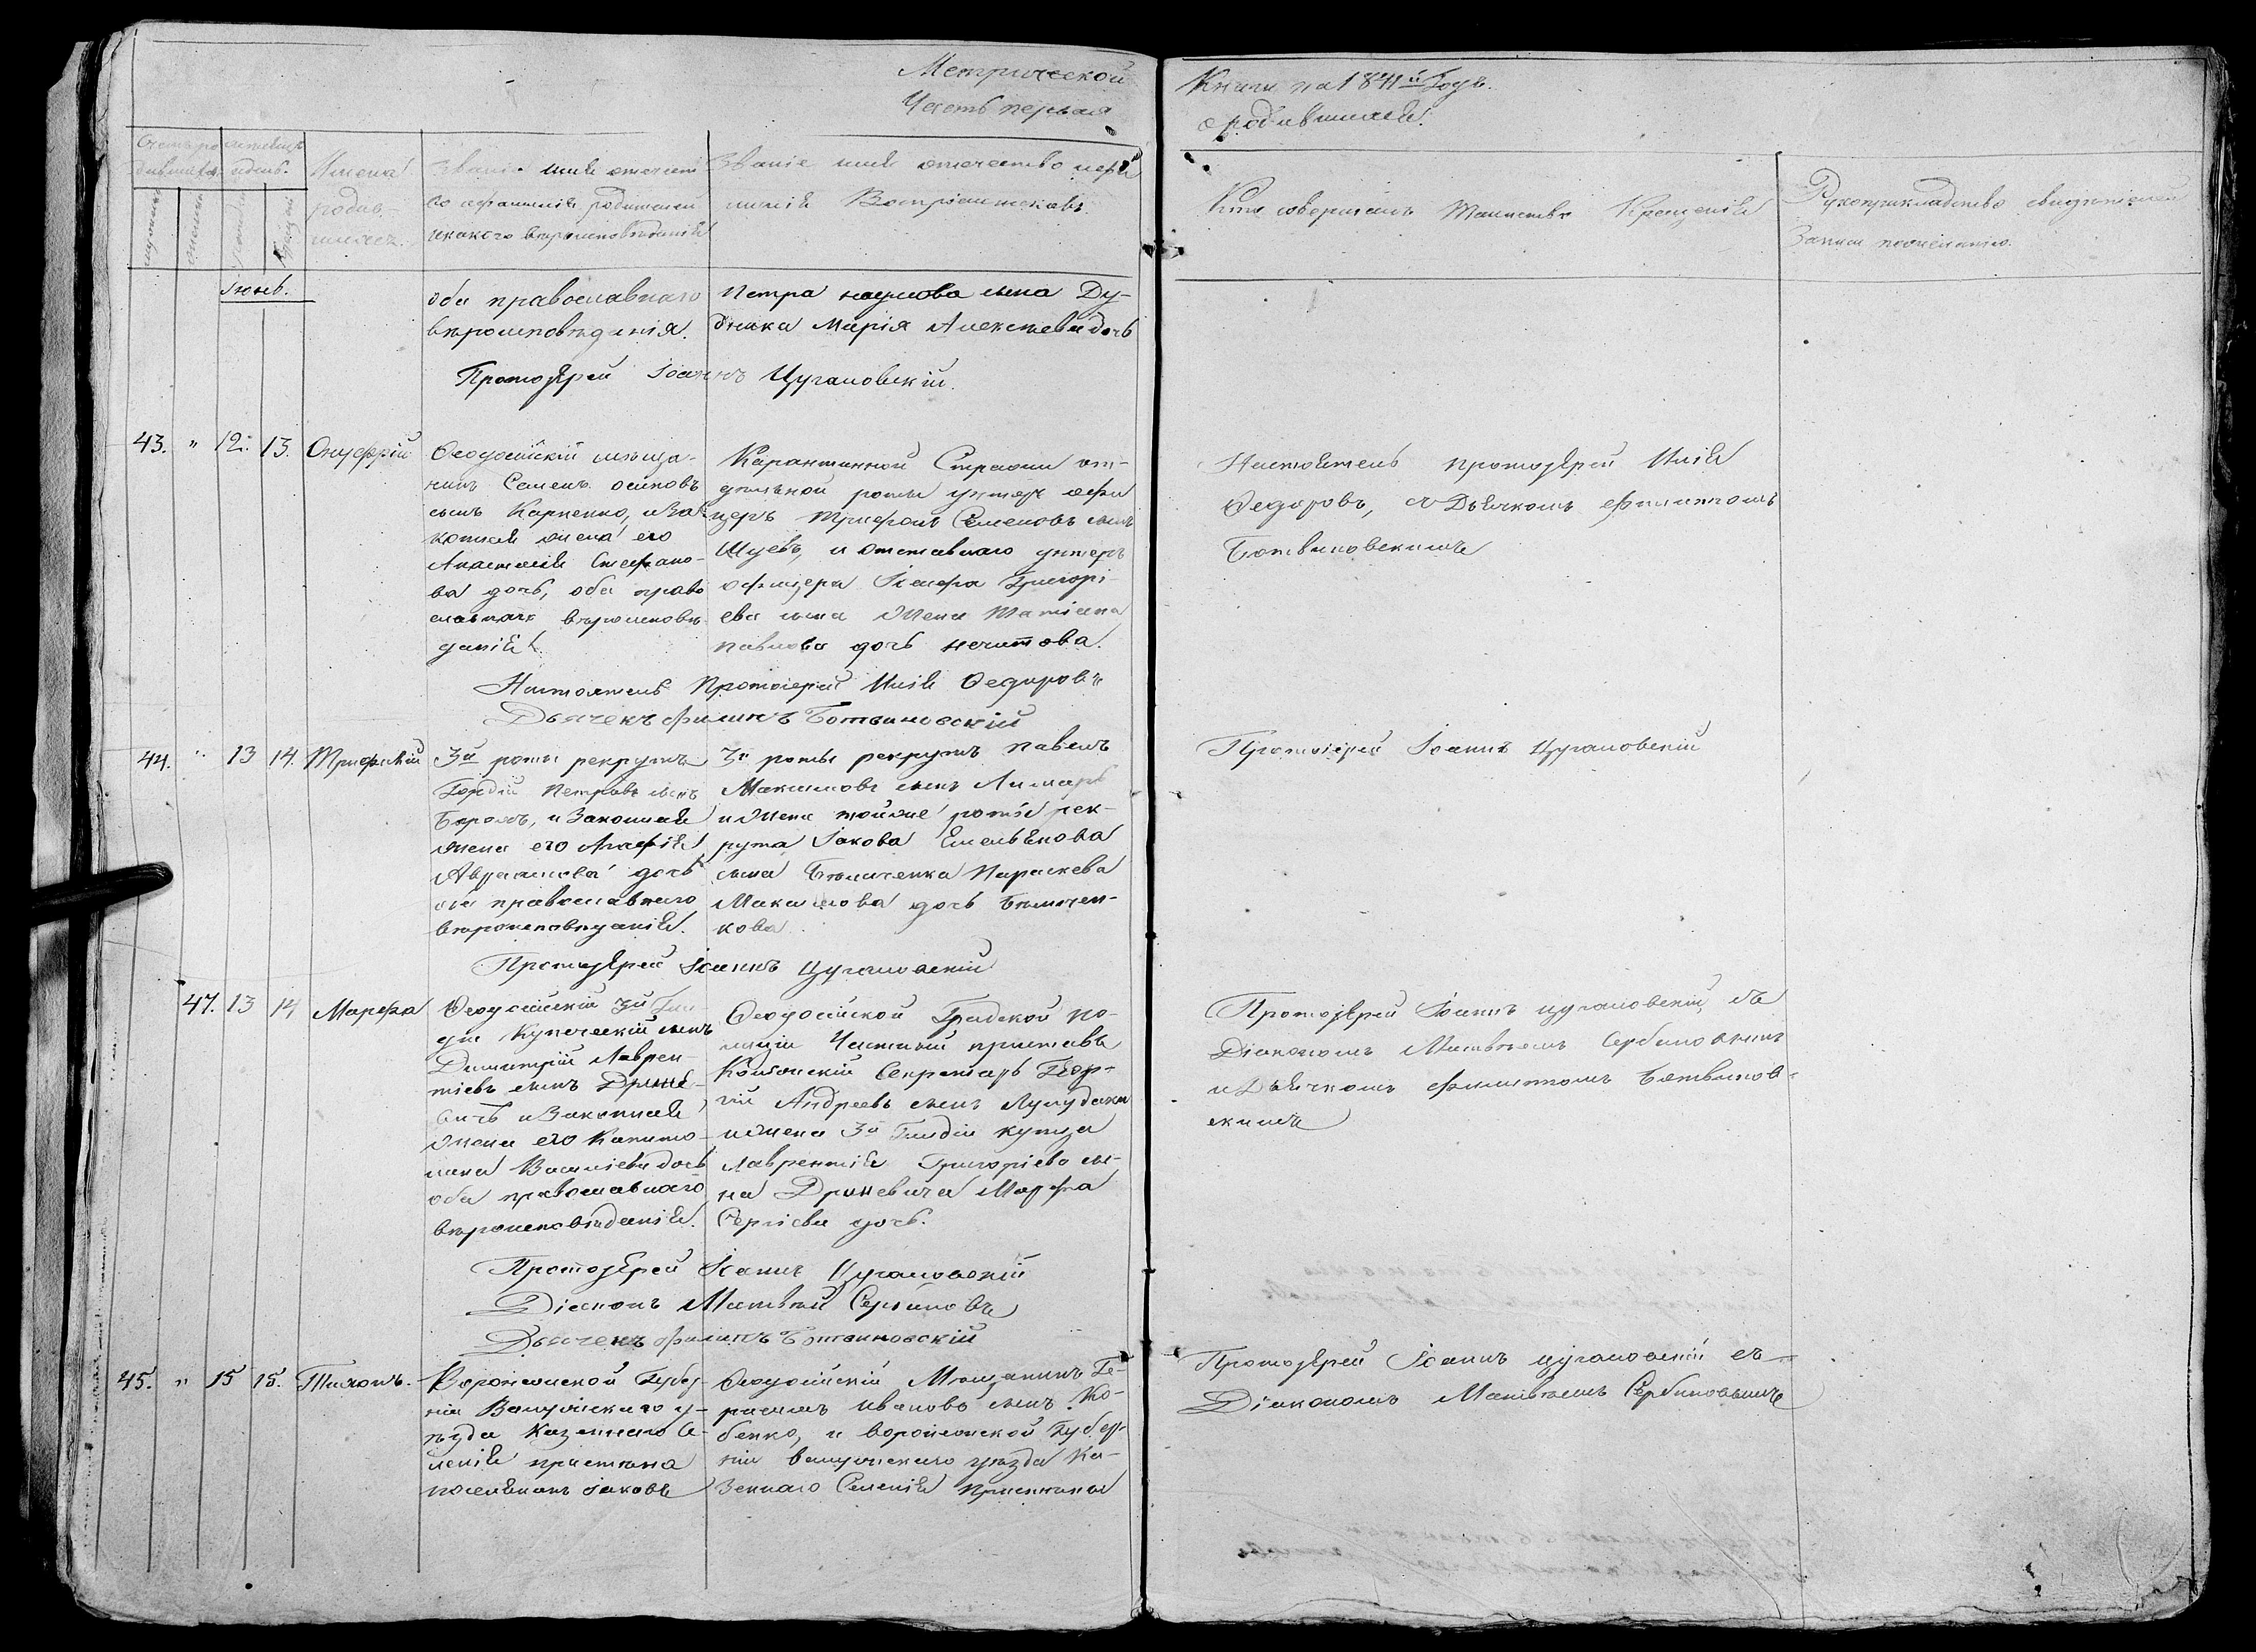 Метрической
Часть первая
Книги на 1841й Годъ.
о родившихся.
Имена
родив-
шихся.
Званіе имя отечест-
во и фамилія родителей
и какого вѣроисповѣданія
Званіе имя отечество и фа-
милія Воспріемниковъ.
Кто совершалъ Таинство Крещенія
Рукоприкладство свидѣтелей
Записи по желанію.
Іюнь.
оба православнаго
вѣроисповѣданія.
Петра наумова сына Ду-
бника Марія Алексѣева дочь
Протоіерей Іоаннъ Цугановскій.
43. " 12. 13. Онуфрій
Ѳеодосійскій мѣща-
нинъ Семенъ осиповъ
сынъ Карпенко, и За-
конная жена его
Анастасія Стефано-
ва дочь, оба право
славнаго вѣроисповѣ-
данія
Карантинной Стражи от-
дѣльной роты унтеръ офи
церъ Трифонъ Семеновъ сынъ
Шуевъ, и отставнаго унтеръ
офицера Іосифа Григорі-
ева сына жена Татіана
павлова дочь нечитова.
Настоятель протоіерей Илія
Ѳедоровъ, съ Дьячкомъ филиппомъ
Ботвиновскимъ
Настоятель Протоіерей Илія Ѳедоровъ
Дьячекъ филиппъ Ботвиновскій
44. " 13 14. Трифилій
3й роты рекрутъ
Гордій Петровъ сынъ
и Законная
жена его Агафія
Авраамова дочь
оба православнаго
вѣроисповѣданія.
3й роты рекрутъ павелъ
Максимовъ сынъ Лимарь
и жена той же роты рек-
рута Іакова Емельянова
сына Бѣличенка Параскева
Максимова дочь Бѣличен-
кова.
Протоіерей Іоаннъ Цугановскій
Протоіерей Іоаннъ Цугановскій
47. 13 14 Марфа
Ѳеодосійскій 3й Гил-
діи Купеческій сынъ
Димитрій Лаврен-
тіевъ сынъ Дрине-
вичъ и Законная
жена его Капито-
лина Василіева дочь
оба православнаго
вѣроисповѣданія.
Ѳеодосійской Градской по-
лиціи Частный приставъ
Коллежскій Секретарь Геор-
гій Андреевъ сынъ Лулудаки
и жена 3й Гилдіи купца
Лаврентія Григоріева сы-
на Дриневича Марфа
Сергіева дочь.
Протоіерей Іоаннъ цугановскій, съ
Діакономъ Матвѣемъ Сербиновымъ
и Дьячкомъ филиппомъ Ботвинов-
скимъ
Протоіерей Іоаннъ Цугановскій
Діаконъ Матвѣй Сербиновъ
Дьячекъ филиппъ Ботвиновскій
45. " 15 15. Тихонъ.
Воронежской Губер-
ніи Валуйскаго у-
ѣзда Казеннаго Се-
ленія пристѣна
поселянинъ Іаковъ
Ѳеодосійскій Мѣщанинъ Ге-
расимъ Ивановъ сынъ Ко-
бенко, и воронежской Губер-
ніи валуйскаго уѣзда Ка-
Зеннаго Селенія Пристѣна
Протоіерей Іоаннъ цугановскій съ
Діакономъ Матвѣемъ Сербиновымъ